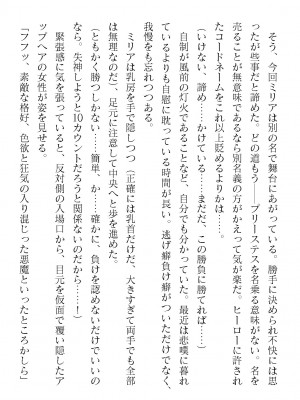 そう、今回ミリアは別の名で舞台にあがっている。勝手に決められ不快には思
ったが些事だと諦めた。どの道もう　プリーステスを名乗る意味がない。名を
売ることが無意味であるなら別名義の方がかえって気が楽だ。ヒーローに許され
たコードネームをこれ以上貶めるよりかは……。
（いけない、諦め……かけている……まだだ、この勝負に勝てれば……）
自制が風前の灯火であることなど、自分でも分かっていた。最近は悲嘆に暮れ
ているよりも自慰に耽っている時間が長い。逃げ癖負け癖がついただけでなく、
我慢をも忘れつつある。
ミリアは乳房を手で隠しつつ（正確には乳首だけだ、大きすぎて両手でも全部
は無理なのだ）、足元に注意して中央へと歩を進めた。
（ともかく勝つしかない……簡単、か……確かに、負けを認めないだけでいい
なら。失神しようと10カウントだろうと関係ないのだから……！）
緊張感に気を張っていると、反対側の入場口から、目元を仮面で覆い隠したア
ップヘアの女性が姿を見せる。
「フフッ、素敵な格好。色欲と狂気の入り混じった悪魔といったところかしら」